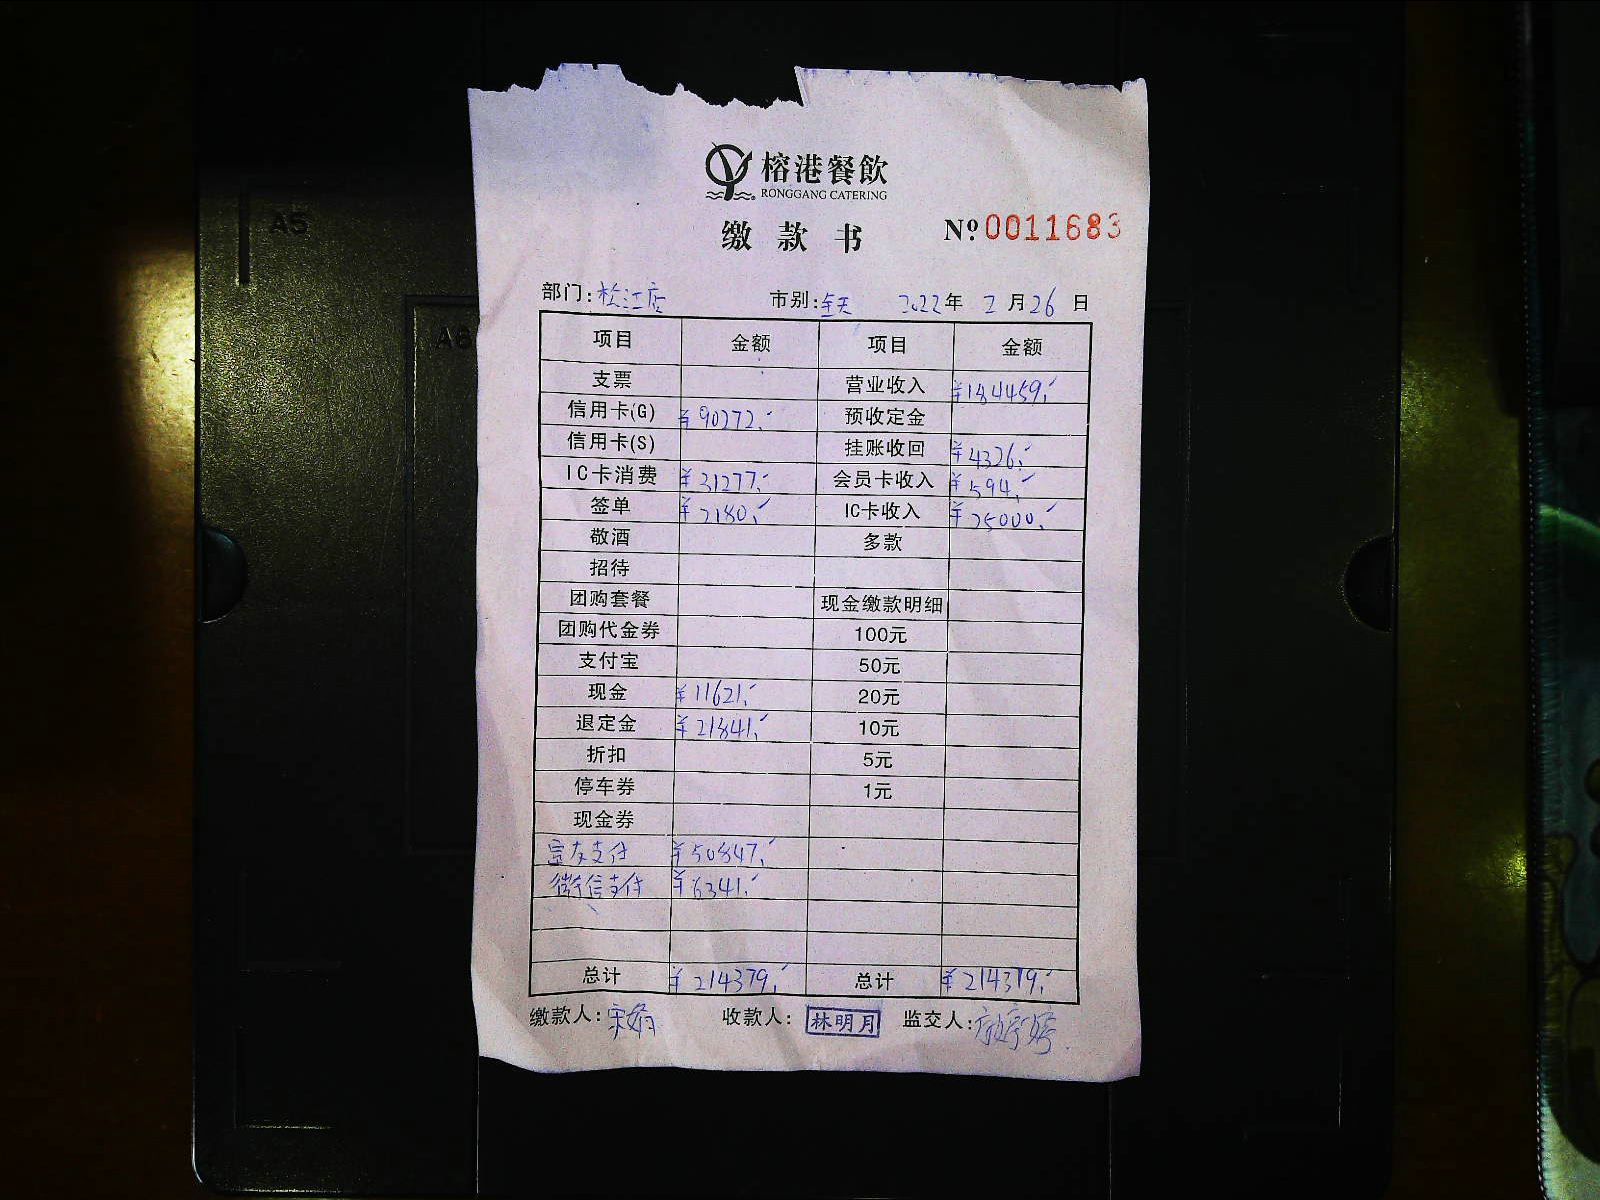 榕港餐飲
RONGGANG CATERING
缴款书 Nº 0011683
部门:松江店 市别:全天 2022年 2月26日
项目 金额 项目 金额
支票 营业收入 ¥184459.-
信用卡(G) ¥90272.- 预收定金
信用卡(S) 挂账收回 ¥4326.-
IC卡消费 ¥31277.- 会员卡收入 ¥594.-
签单 ¥2180.- IC卡收入 ¥25000.-
敬酒 多款
招待
团购套餐 现金缴款明细
团购代金券 100元
支付宝 50元
现金 ¥11621.- 20元
退定金 ¥21841.- 10元
折扣 5元
停车券 1元
现金券
富友支付 ¥50847.-
微信支付 ¥6341.-
总计 ¥214379.- 总计 ¥214379.-
缴款人: 收款人: 林明月 监交人:
A5
A6